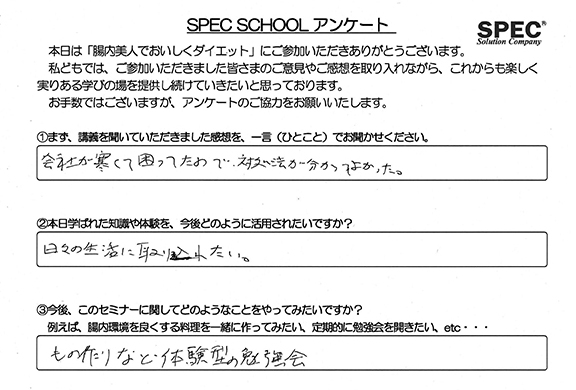 SPEC SCHOOL アンケート
SPEC®
Solution Company
本日は「腸内美人でおいしくダイエット」にご参加いただきありがとうございます。
私どもでは、ご参加いただきました皆さまのご意見やご感想を取り入れながら、これからも楽しく
実りある学びの場を提供し続けていきたいと思っております。
お手数ではございますが、アンケートのご協力をお願いいたします。
①まず、講義を聞いていただきました感想を、一言（ひとこと）でお聞かせください。
会社が寒くて困ってたので、対処法が分かってよかった。
②本日学ばれた知識や体験を、今後どのように活用されたいですか？
日々の生活に取り込れたい。
③今後、このセミナーに関してどのようなことをやってみたいですか？
例えば、腸内環境を良くする料理を一緒に作ってみたい、定期的に勉強会を開きたい、etc・・・
もの作りなど体験型の勉強会